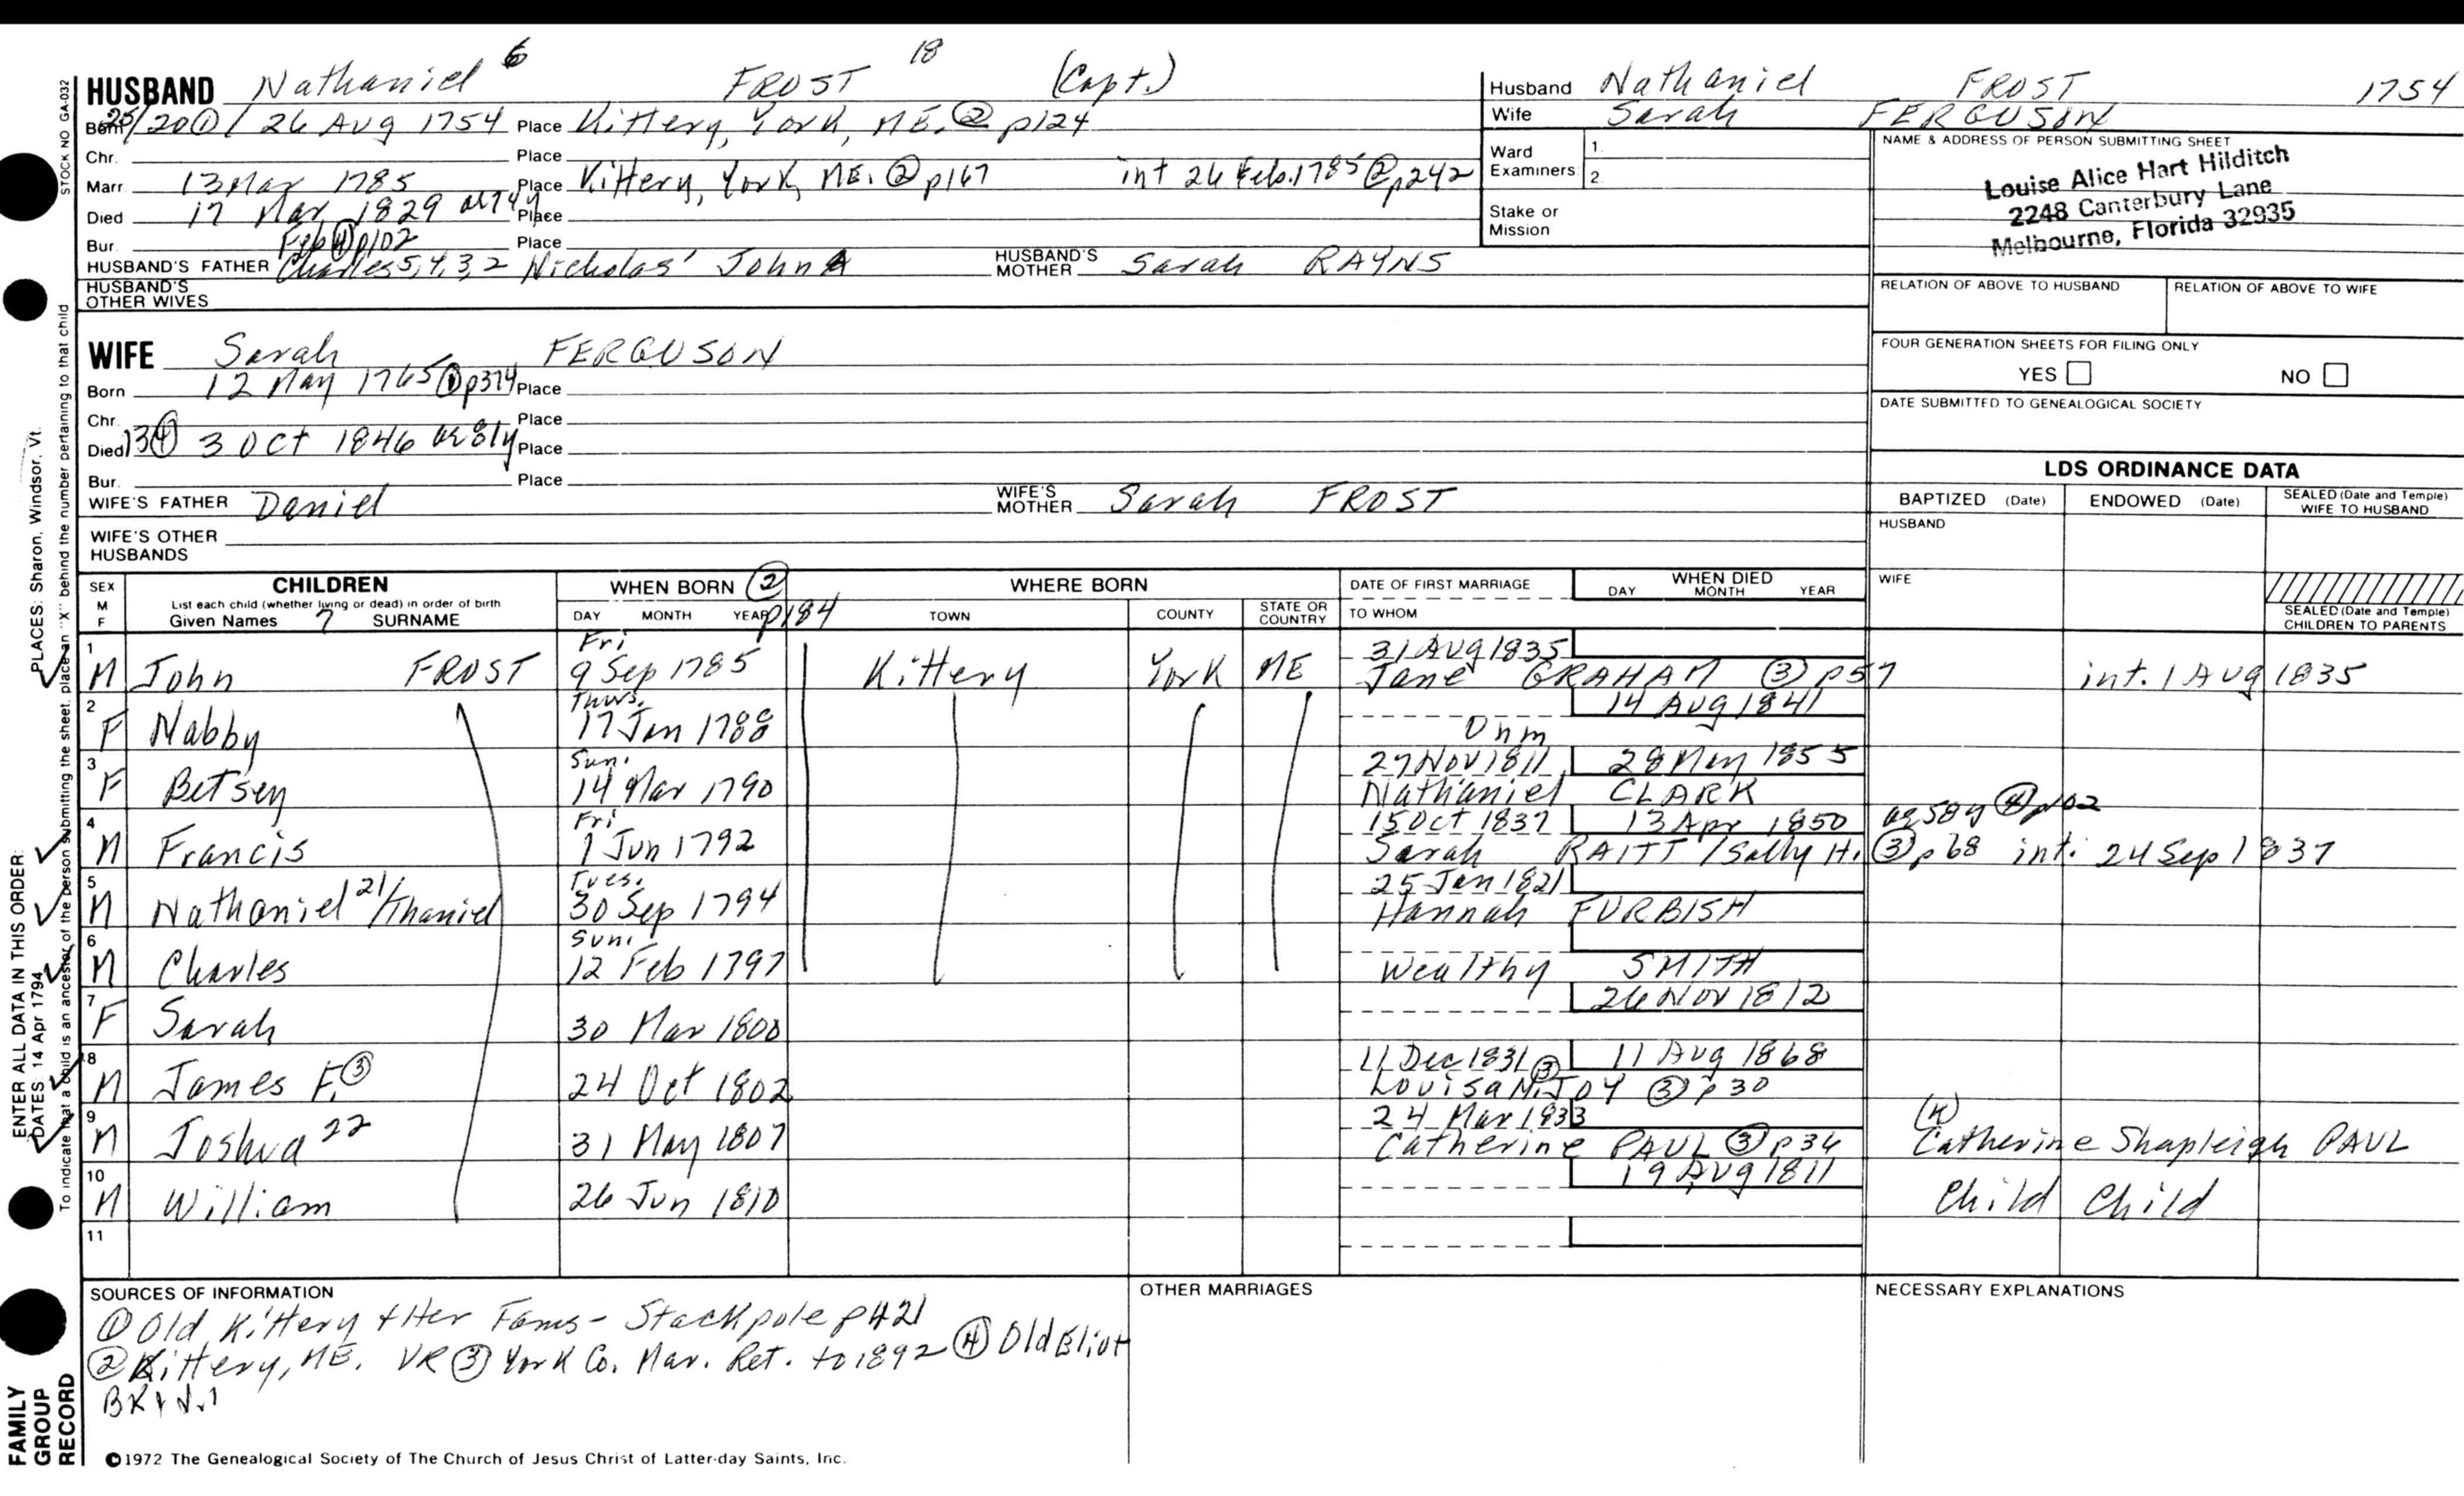 HUSBAND Nathaniel 6 FROST 18 (Capt.)
Born 25/20① / 26 Aug 1754 Place Kittery, York, ME. ② p124
Chr. Place
Marr. 13 Mar 1785 Place Kittery, York, ME. ② p167 int 26 Feb. 1785 ② p242
Died 17 Mar 1829 ae 74y Place
Feb ④ p102
Bur. Place
HUSBAND'S FATHER Charles 5,4,3,2 Nicholas' John A HUSBAND'S MOTHER Sarah RAYNS
HUSBAND'S OTHER WIVES
WIFE Sarah FERGUSON
Born 12 May 1765 ① p374 Place
Chr. Place
Died 13④ 3 Oct 1846 ae 81y Place
Bur. Place
WIFE'S FATHER Daniel WIFE'S MOTHER Sarah FROST
WIFE'S OTHER HUSBANDS
Husband Nathaniel FROST 1754
Wife Sarah FERGUSON
Ward Examiners 1. 2.
Stake or Mission
NAME & ADDRESS OF PERSON SUBMITTING SHEET
Louise Alice Hart Hilditch
2248 Canterbury Lane
Melbourne, Florida 32935
RELATION OF ABOVE TO HUSBAND RELATION OF ABOVE TO WIFE
FOUR GENERATION SHEETS FOR FILING ONLY
YES NO
DATE SUBMITTED TO GENEALOGICAL SOCIETY
LDS ORDINANCE DATA
BAPTIZED (Date) ENDOWED (Date) SEALED (Date and Temple) WIFE TO HUSBAND
HUSBAND
WIFE
SEALED (Date and Temple) CHILDREN TO PARENTS
SEX M F CHILDREN List each child (whether living or dead) in order of birth Given Names 7 SURNAME
WHEN BORN ② p184 DAY MONTH YEAR
WHERE BORN TOWN COUNTY STATE OR COUNTRY
DATE OF FIRST MARRIAGE TO WHOM
WHEN DIED DAY MONTH YEAR
1 M John FROST Fri 9 Sep 1785 Kittery York ME 31 Aug 1835 Jane GRAHAM ③ p57 int. 1 Aug 1835
2 F Nabby Thurs. 17 Jan 1788 Unm 14 Aug 1841
3 F Betsey Sun. 14 Mar 1790 27 Nov 1811 28 May 1855 Nathaniel CLARK
4 M Francis Fri 1 Jun 1792 15 Oct 1837 13 Apr 1850 ae 58y ④ p102
Sarah RAITT / Sally H. ③ p68 int. 24 Sep 1837
5 M Nathaniel 21 / Thaniel Tues. 30 Sep 1794 25 Jan 1821 Hannah FURBISH
6 M Charles Sun. 12 Feb 1797 Wealthy SMITH
7 F Sarah 30 Mar 1800 26 Nov 1812
8 M James F. ③ 24 Oct 1802 11 Dec 1831 ③ 11 Aug 1868 Louisa M. JOY ③ p30
9 M Joshua 22 31 May 1807 24 Mar 1833 Catherine PAUL ③ p34 (K) Catherine Shapleigh PAUL
10 M William 26 Jun 1810 19 Aug 1811 Child Child
11
SOURCES OF INFORMATION
① Old Kittery & Her Fams - Stackpole p421
② Kittery, ME. VR ③ York Co. Mar. Ret. to 1892 ④ Old Eliot
BK 1 V.1
OTHER MARRIAGES
NECESSARY EXPLANATIONS
©1972 The Genealogical Society of The Church of Jesus Christ of Latter-day Saints, Inc.
STOCK NO GA-032
To indicate that a child is an ancestor of the person submitting the sheet, place an "X" behind the number pertaining to that child
ENTER ALL DATA IN THIS ORDER:
DATES 14 Apr 1794
PLACES: Sharon, Windsor, Vt.
FAMILY GROUP RECORD